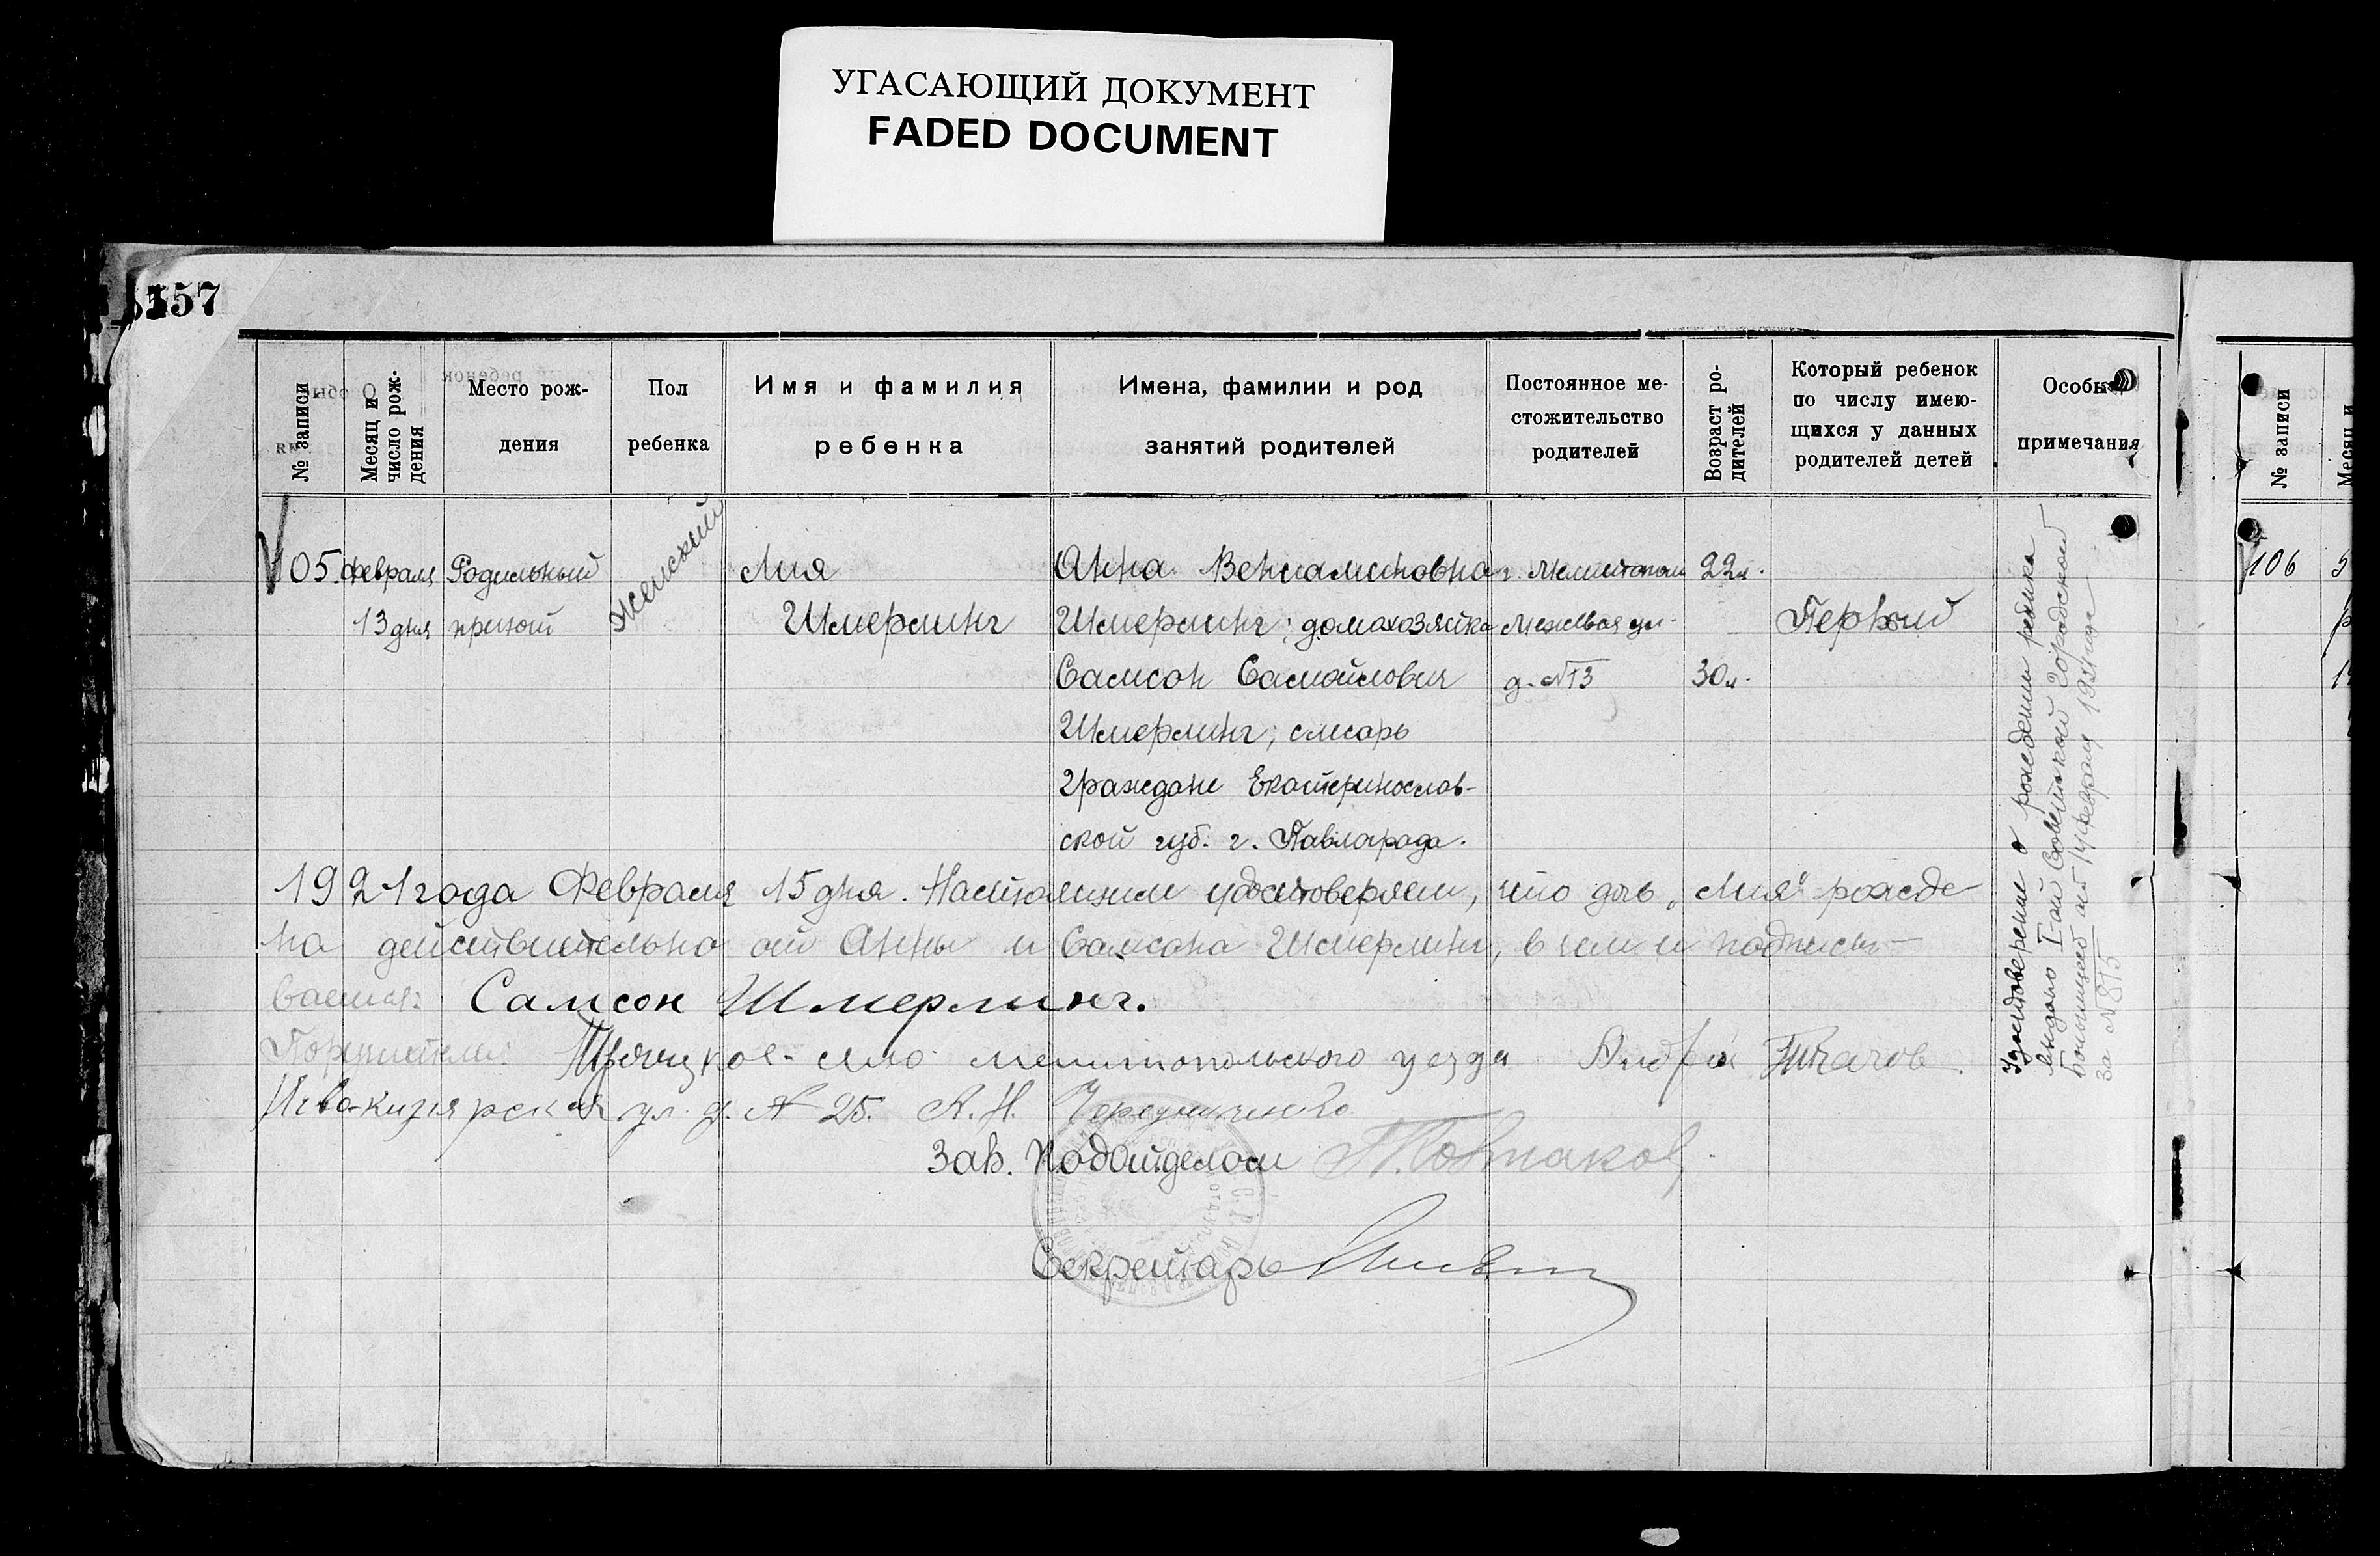 УГАСАЮЩИЙ ДОКУМЕНТ
FADED DOCUMENT
157
№ записи
Месяц и
число рож-
дения
Место рож-
дения
Пол
ребенка
Имя и фамилия
ребенка
Имена, фамилии и род
занятий родителей
Постоянное ме-
стожительство
родителей
Возраст ро-
дителей
Который ребенок
по числу имею-
щихся у данных
родителей детей
Особые
примечания
105
февраля
13 дня
Родильный
приют
Женский
Лия
Шмерлинг
Анна Вениаминовна
Шмерлинг; домохозяйка
Самсон Самойлович
Шмерлинг; слесарь
граждане Екатеринослав-
ской губ. г. Павлограда.
г. Мелитополь
Межевая ул.
д. №13
22 л.
30 л.
Первый
Удостоверение о рождении ребенка
выдано I ой Советской Городской
Больницей от 14 февраля 1921 года
за № 875
1921 года Февраля 15 дня. Настоящим удостоверяем, что дочь „Лия" рожде-
на действительно от Анны и Самсона Шмерлинг, в чем и подписы-
ваемся: Самсон Шмерлинг.
Поручители: Троицкое село мелитопольского уезда Андрей Ткачов.
Ново-кизиярская ул. д. № 25. А. Н. Чередниченко
Зав. Подотделом
Секретарь
№ записи
Месяц и
106